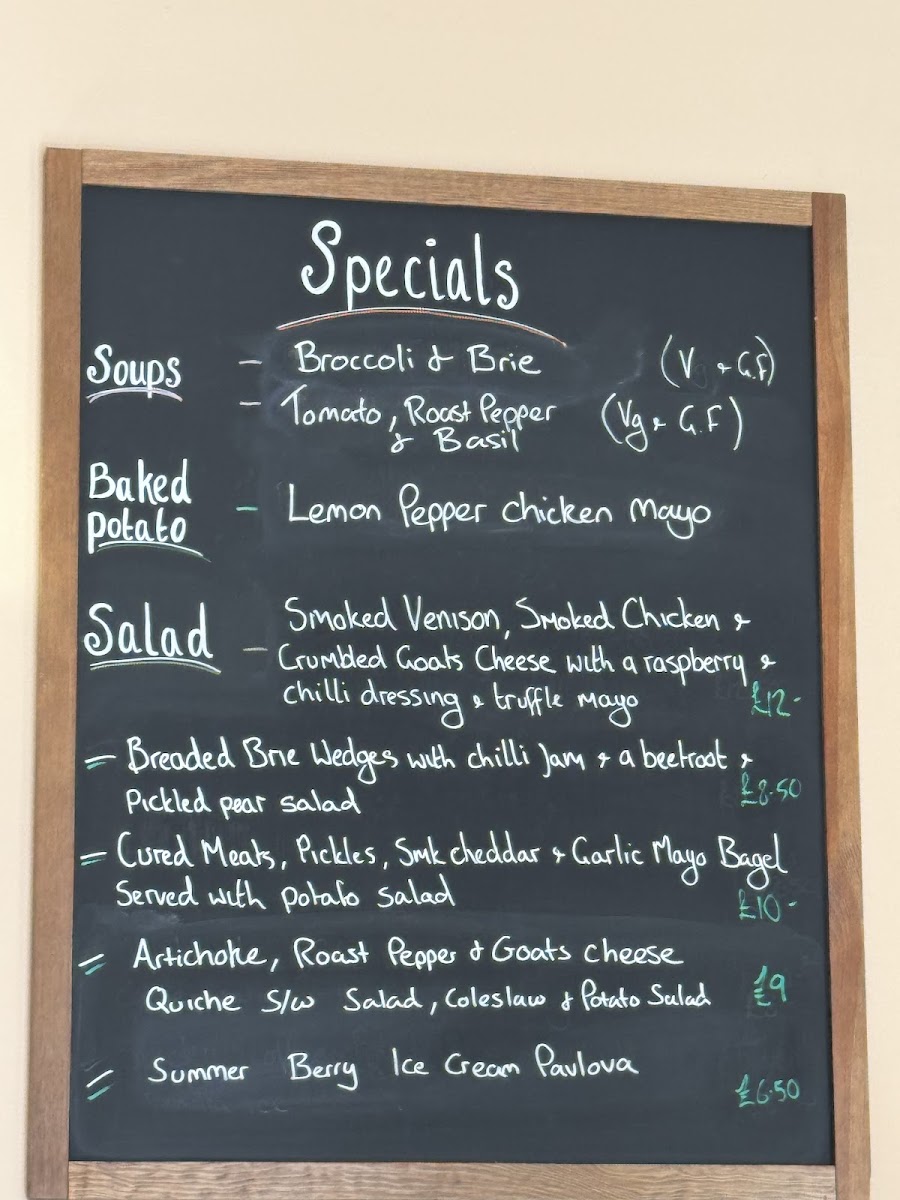 Specials
Soups - Broccoli & Brie (V & G.F)
- Tomato, Roast Pepper (Vg & G.F)
& Basil
Baked
potato - Lemon Pepper chicken Mayo
Salad - Smoked Venison, Smoked Chicken &
Crumbled Goats Cheese with a raspberry &
chilli dressing & truffle mayo £12-
= Breaded Brie Wedges with chilli Jam & a beetroot &
Pickled pear salad £8.50
= Cured Meats, Pickles, Smk cheddar & Garlic Mayo Bagel
Served with potato salad £10-
= Artichoke, Roast Pepper & Goats cheese
Quiche S/w Salad, Coleslaw & Potato Salad £9
= Summer Berry Ice Cream Pavlova
£6.50